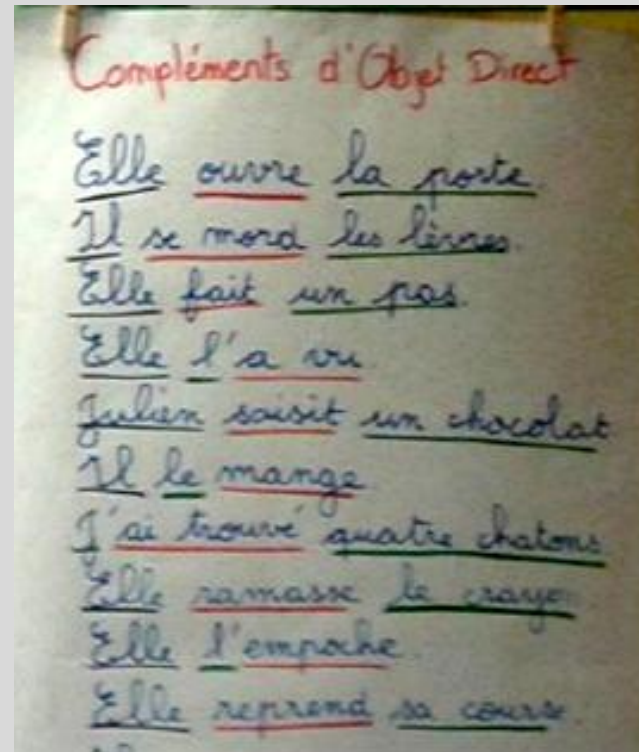 Compléments d'Objet Direct
Elle ouvre la porte.
Il se mord les lèvres.
Elle fait un pas.
Elle l'a vu
Julien saisit un chocolat
Il le mange
J'ai trouvé quatre chatons
Elle ramasse le crayon
Elle l'empoche.
Elle reprend sa course.